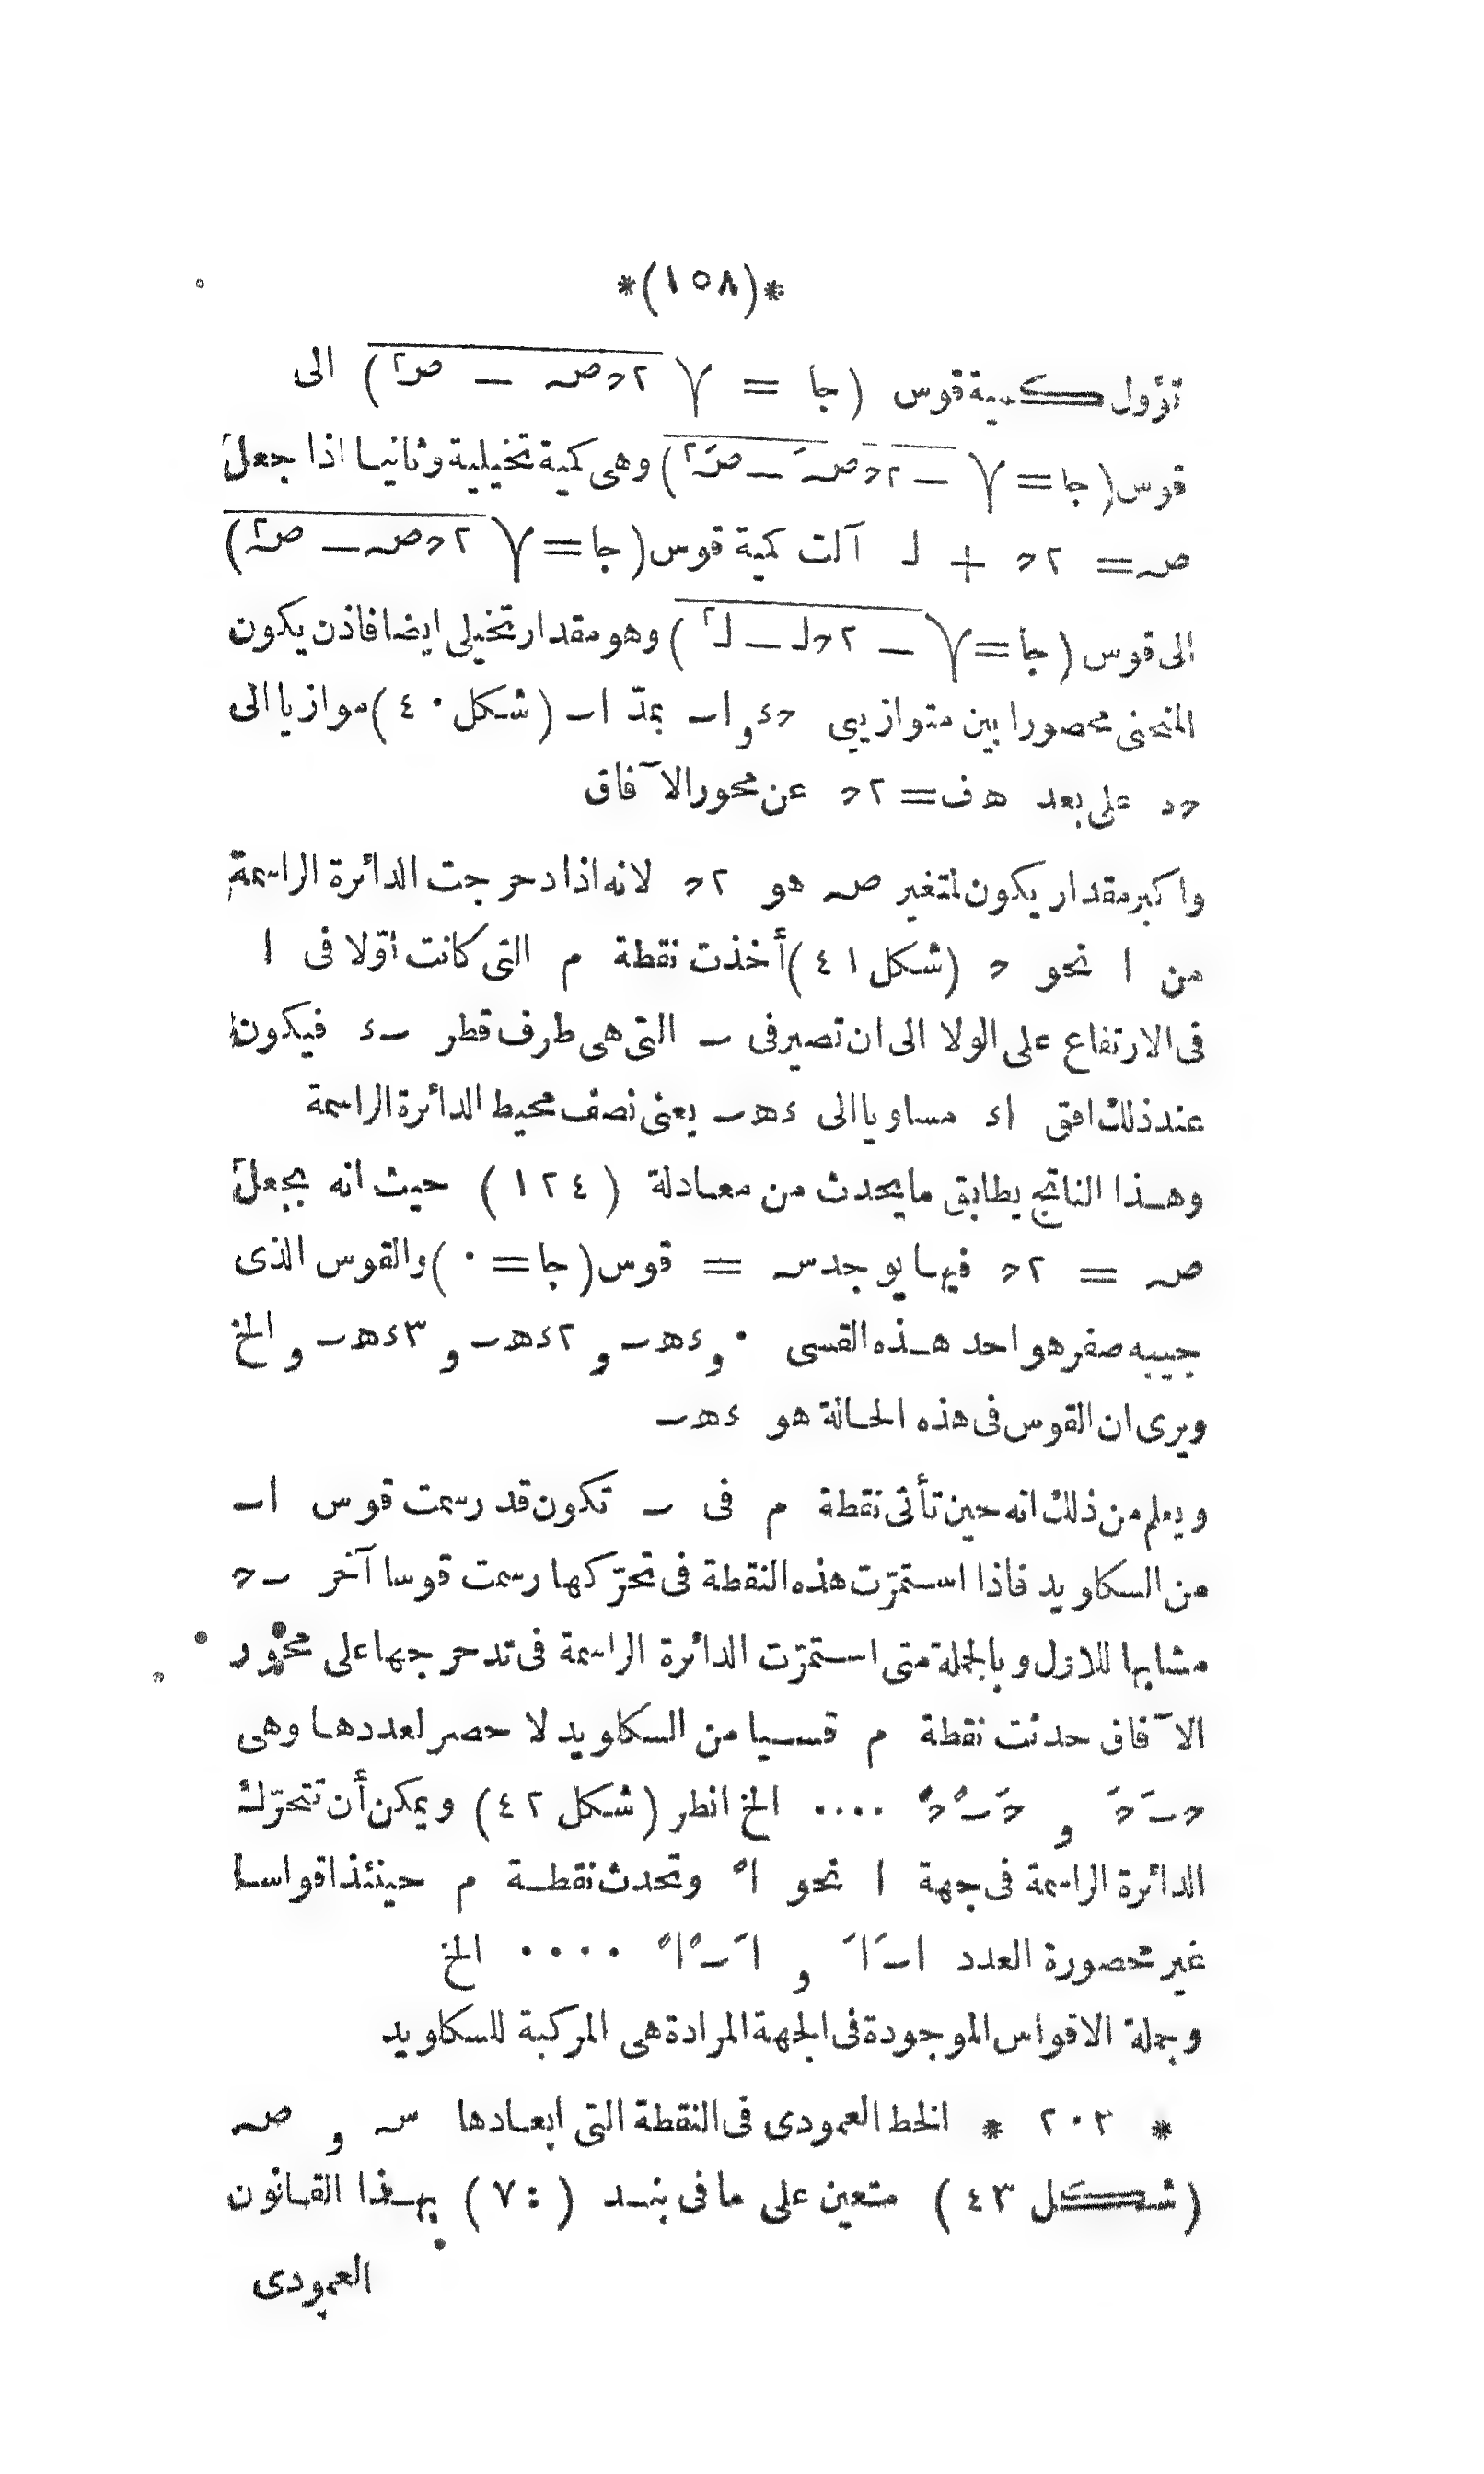 *(١٥٨)*
تؤول كمية قوس (جا = √٢حـصـ − صـ٢) الى
قوس (جا = √−٢حـصـَ − صـَ٢) وهى كمية تخيلية وثانيا اذا جعل
صـ = ٢حـ + لـ آلت كمية قوس (جا = √٢حـصـ − صـ٢)
الى قوس (جا = √−٢حـلـ − لـ٢) وهو مقدار تخيلى ايضا فاذن يكون
المنحنى محصورا بين متوازيى حـء و اب بمدّ اب (شكل ٤٠) موازيا الى
حـد على بعد هـ ف = ٢حـ عن محور الآفاق
واكبر مقدار يكون لمتغير صـ هو ٢حـ لانه اذا دحرجت الدائرة الراسمة
من ا نحو حـ (شكل ٤١) أخذت نقطة م التى كانت اوّلا فى ا
فى الارتفاع على الولا الى ان تصير فى ب التى هى طرف قطر بء فيكون
عند ذلك افق اء مساويا الى ءهـب يعنى نصف محيط الدائرة الراسمة
وهذا الناتج يطابق ما يحدث من معادلة (١٢٤) حيث انه بجعل
صـ = ٢حـ فيها يوجد سـ = قوس (جا = ٠) والقوس الذى
جيبه صفر هو احد هذه القسى ٠ و ءهـب و ٢ءهـب و ٣ءهـب و الخ
ويرى ان القوس فى هذه الحالة هو ءهـب
ويعلم من ذلك انه حين تأتى نقطة م فى ب تكون قد رسمت قوس اب
من السكاويد فاذا استمرّت هذه النقطة فى تحرّكها رسمت قوسا آخر بحـ
مشابها للاول وبالجملة متى استمرّت الدائرة الراسمة فى تدحرجها على محور
الآفاق حدثت نقطة م قسيا من السكاويد لا حصر لعددها وهى
حـبَحـَ و حـَبًحـً .... الخ انظر (شكل ٤٢) ويمكن أن تتحرّك
الدائرة الراسمة فى جهة ا نحو اً وتحدث نقطة م حينئذ اقواسا
غير محصورة العدد ابَاَ و اَبًاً .... الخ
وجملة الاقواس الموجودة فى الجهة المرادة هى المركبة للسكاويد
* ٢٠٣ * الخط العمودى فى النقطة التى ابعادها سـ و صـ
(شكل ٤٣) متعين على ما فى بند (٧٠) بهذا القانون
العمودى